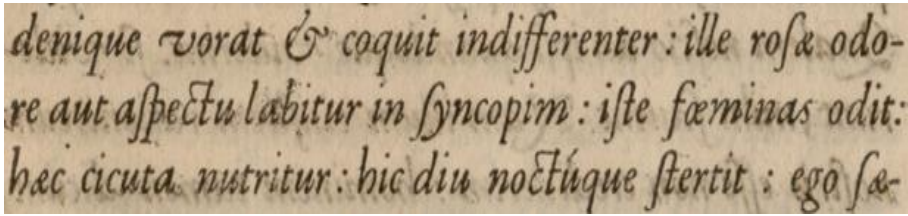 denique vorat & coquit indifferenter: ille roſæ odo-
re aut aſpectu labitur in ſyncopim: iſte fœminas odit:
hæc cicuta nutritur: hic diu noctúque ſtertit: ego ſæ-